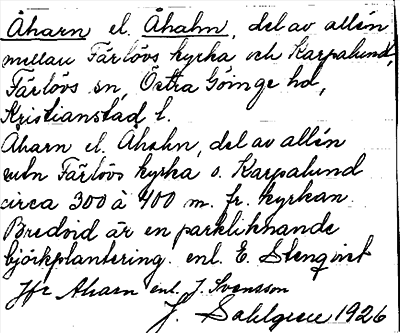 Åharn el. Åhahn, del av allén
mellan Färlövs kyrka och Karpalund,
Färlövs sn, Östra Göinge hd,
Kristianstad l.
Åharn el. Åhahn, del av allén
mln Färlövs kyrka o. Karpalund
circa 300 à 400 m. fr. kyrkan.
Bredvid är en parkliknande
björkplantering. enl. E. Stenqvist
Jfr Aharn enl. J. Svensson
J. Sahlgren 1926